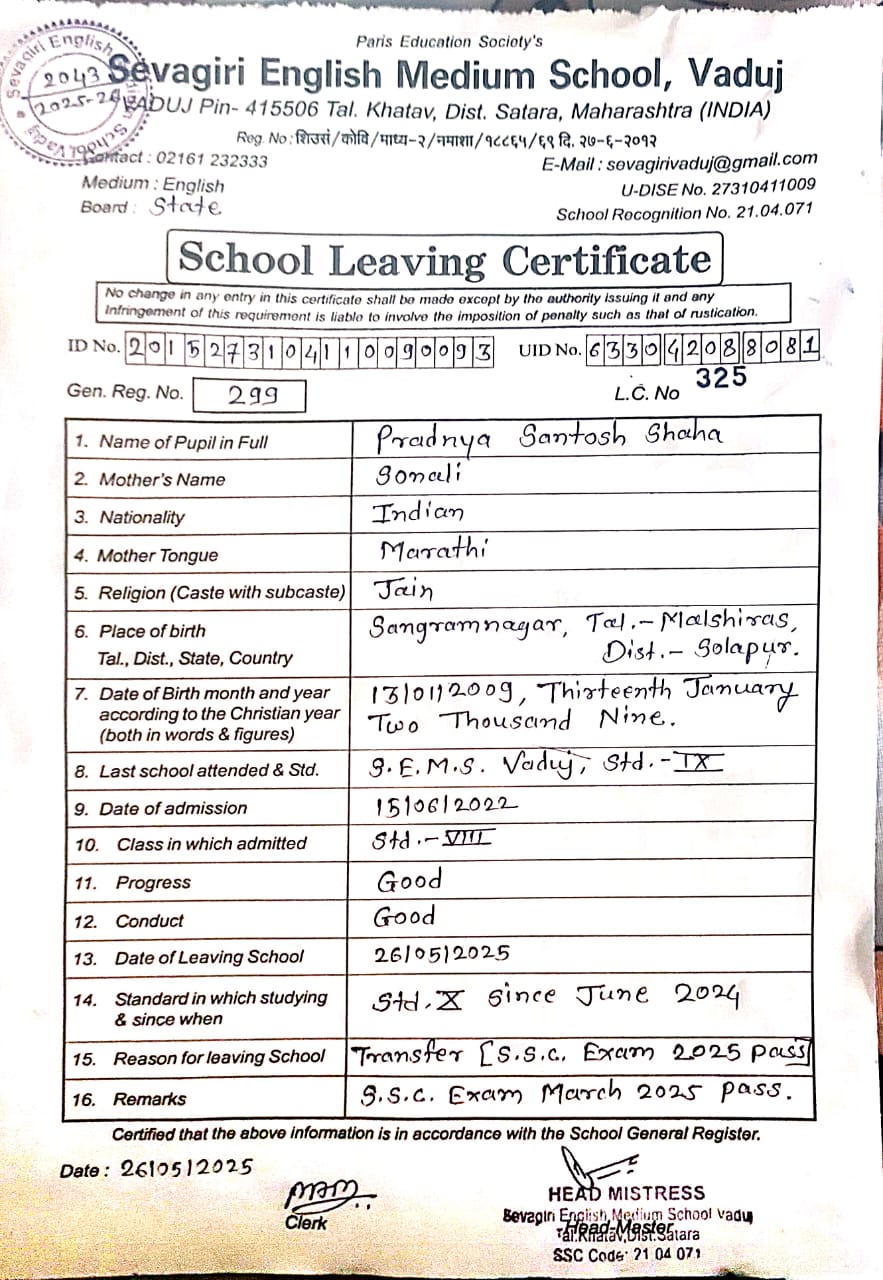 Sevagiri English Medium School Vaduj
2043
2025-26
Paris Education Society's
Sevagiri English Medium School, Vaduj
VADUJ Pin- 415506 Tal. Khatav, Dist. Satara, Maharashtra (INDIA)
Reg. No : शिउसं/कोवि/माध्य-२/नमाशा/१८८६५/६९ दि. २७-६-२०१२
Contact : 02161 232333
E-Mail : sevagirivaduj@gmail.com
Medium : English
U-DISE No. 27310411009
Board : State
School Recognition No. 21.04.071
School Leaving Certificate
No change in any entry in this certificate shall be made except by the authority issuing it and any
Infringement of this requirement is liable to involve the imposition of penalty such as that of rustication.
ID No. 2015273104110090093 UID No. 633042088081
Gen. Reg. No. 299 L.C. No 325
1. Name of Pupil in Full Pradnya Santosh Shaha
2. Mother's Name Sonali
3. Nationality Indian
4. Mother Tongue Marathi
5. Religion (Caste with subcaste) Jain
6. Place of birth Sangramnagar, Tal.- Malshiras,
Tal., Dist., State, Country Dist.- Solapur.
7. Date of Birth month and year 13/01/2009, Thirteenth January
according to the Christian year Two Thousand Nine.
(both in words & figures)
8. Last school attended & Std. S.E.M.S. Vaduj, Std.- IX
9. Date of admission 15/06/2022
10. Class in which admitted Std.- VIII
11. Progress Good
12. Conduct Good
13. Date of Leaving School 26/05/2025
14. Standard in which studying Std. X since June 2024
& since when
15. Reason for leaving School Transfer [S.S.C. Exam 2025 pass]
16. Remarks S.S.C. Exam March 2025 pass.
Certified that the above information is in accordance with the School General Register.
Date : 26/05/2025
Clerk
HEAD MISTRESS
Sevagiri English Medium School Vaduj
Head-Master
Tal.Khatav,Dist.Satara
SSC Code: 21 04 071